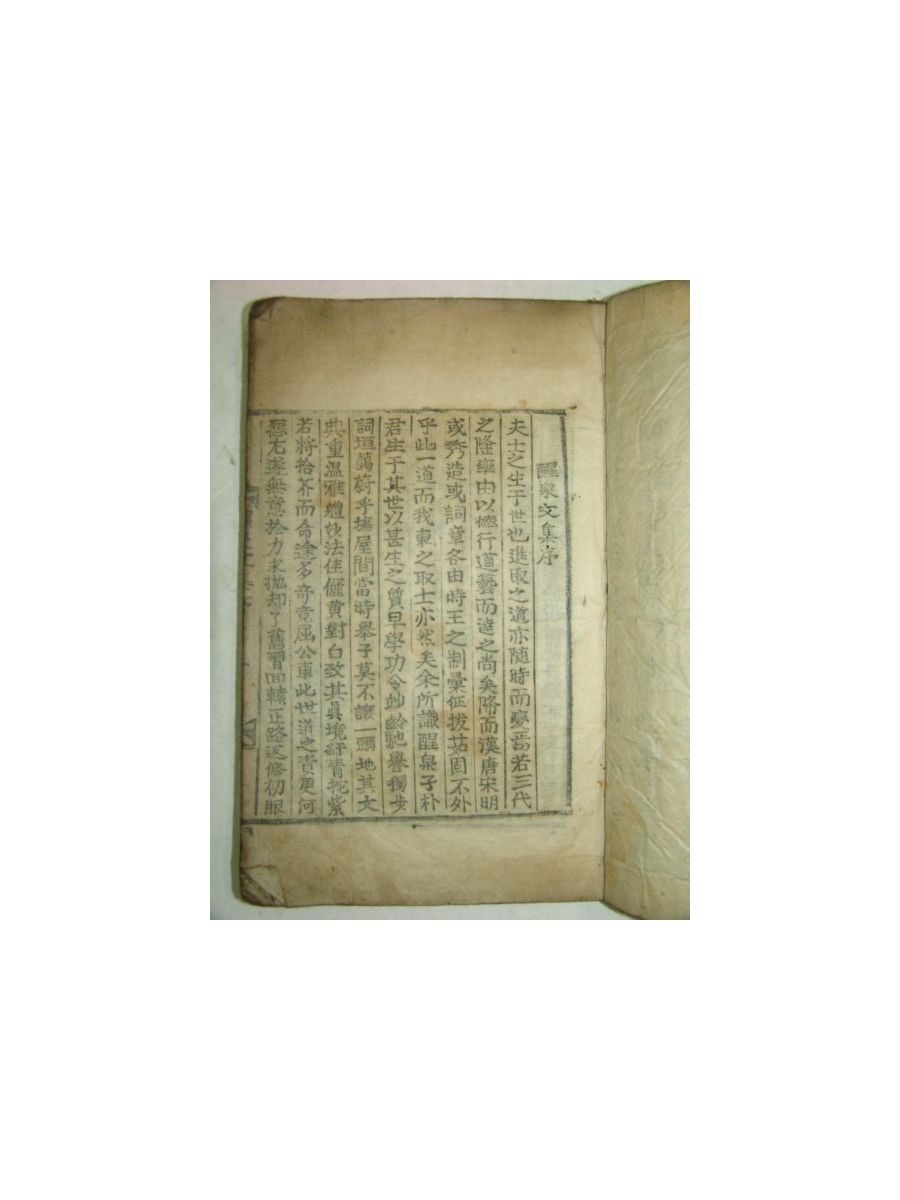 醒泉文集序
夫士之生于世也進取之道亦隨時而變焉若三代
之隆藥由以德行道藝而達之尚矣降而漢唐宋明
或秀造或詞章各由時王之制彙征拔茹固不外
乎此一道而我東之取士亦然矣余所識醒泉子朴
君生于其世以甚生之質早學功令妙齡馳譽獨步
詞垣蔚乎塲屋間當時舉子莫不讓一頭地其文
典重溫雅體妙法佳儷黃對白致其眞境紆靑拖紫
若將拾芥而命途多奇竟屈公車此世道之責更何
怨尤遂無意於力求抛却了舊習回轅正路返修初服